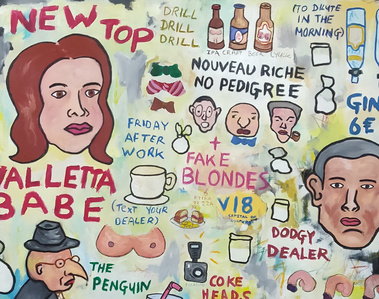 NEW TOP
VALLETTA
BABE
DRILL
DRILL
DRILL
IPA CRAFT
NOUVEAU RICHE
NO PEDIGREE
(TO DILUTE
IN THE
MORNING)
GIN
6€
FRIDAY
AFTER
WORK
+
FAKE
BLONDES
(TEXT YOUR
DEALER)
V18
DODGY
DEALER
THE
PENGUIN
COKE
HEADS